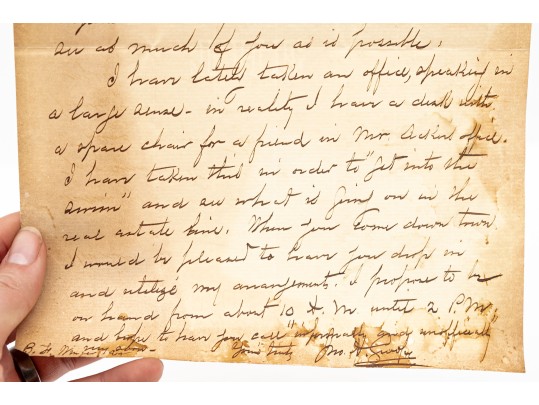 see as much of you as is possible.
I have lately taken an office, speaking in
a large sense - in reality I have a desk with
a spare chair for a friend in Mr office.
I have taken this in order to "get into the
swim" and see what is going on in the
real estate line. When you come down town
I would be pleased to have you drop in
and utilize my arrangement. I propose to be
on hand from about 10 A.M until 2 P.M,
and hope to have you call "informally and unofficially
Yours truly